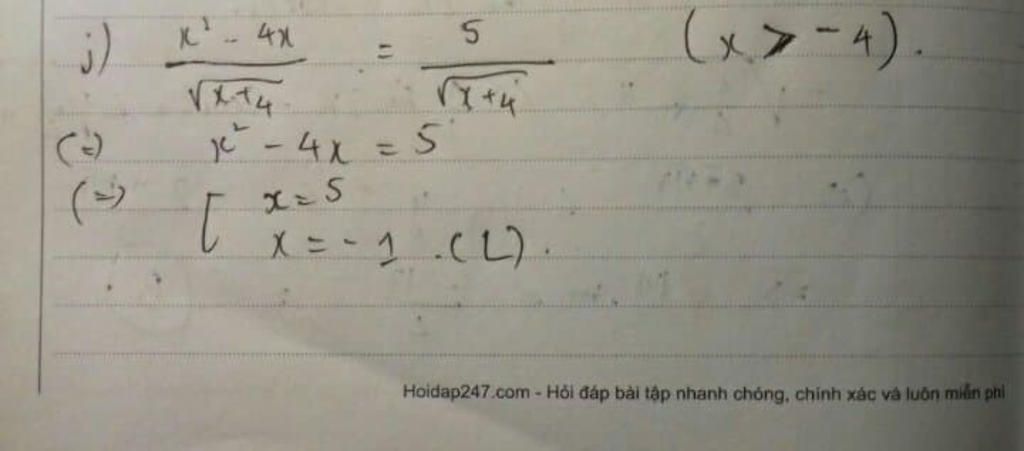 j) x² - 4x / √x+4 = 5 / √x+4 (x > -4).
(=) x² - 4x = 5
(=) [ x = 5
x = -1 . (L) .
Hoidap247.com - Hỏi đáp bài tập nhanh chóng, chính xác và luôn miễn phí